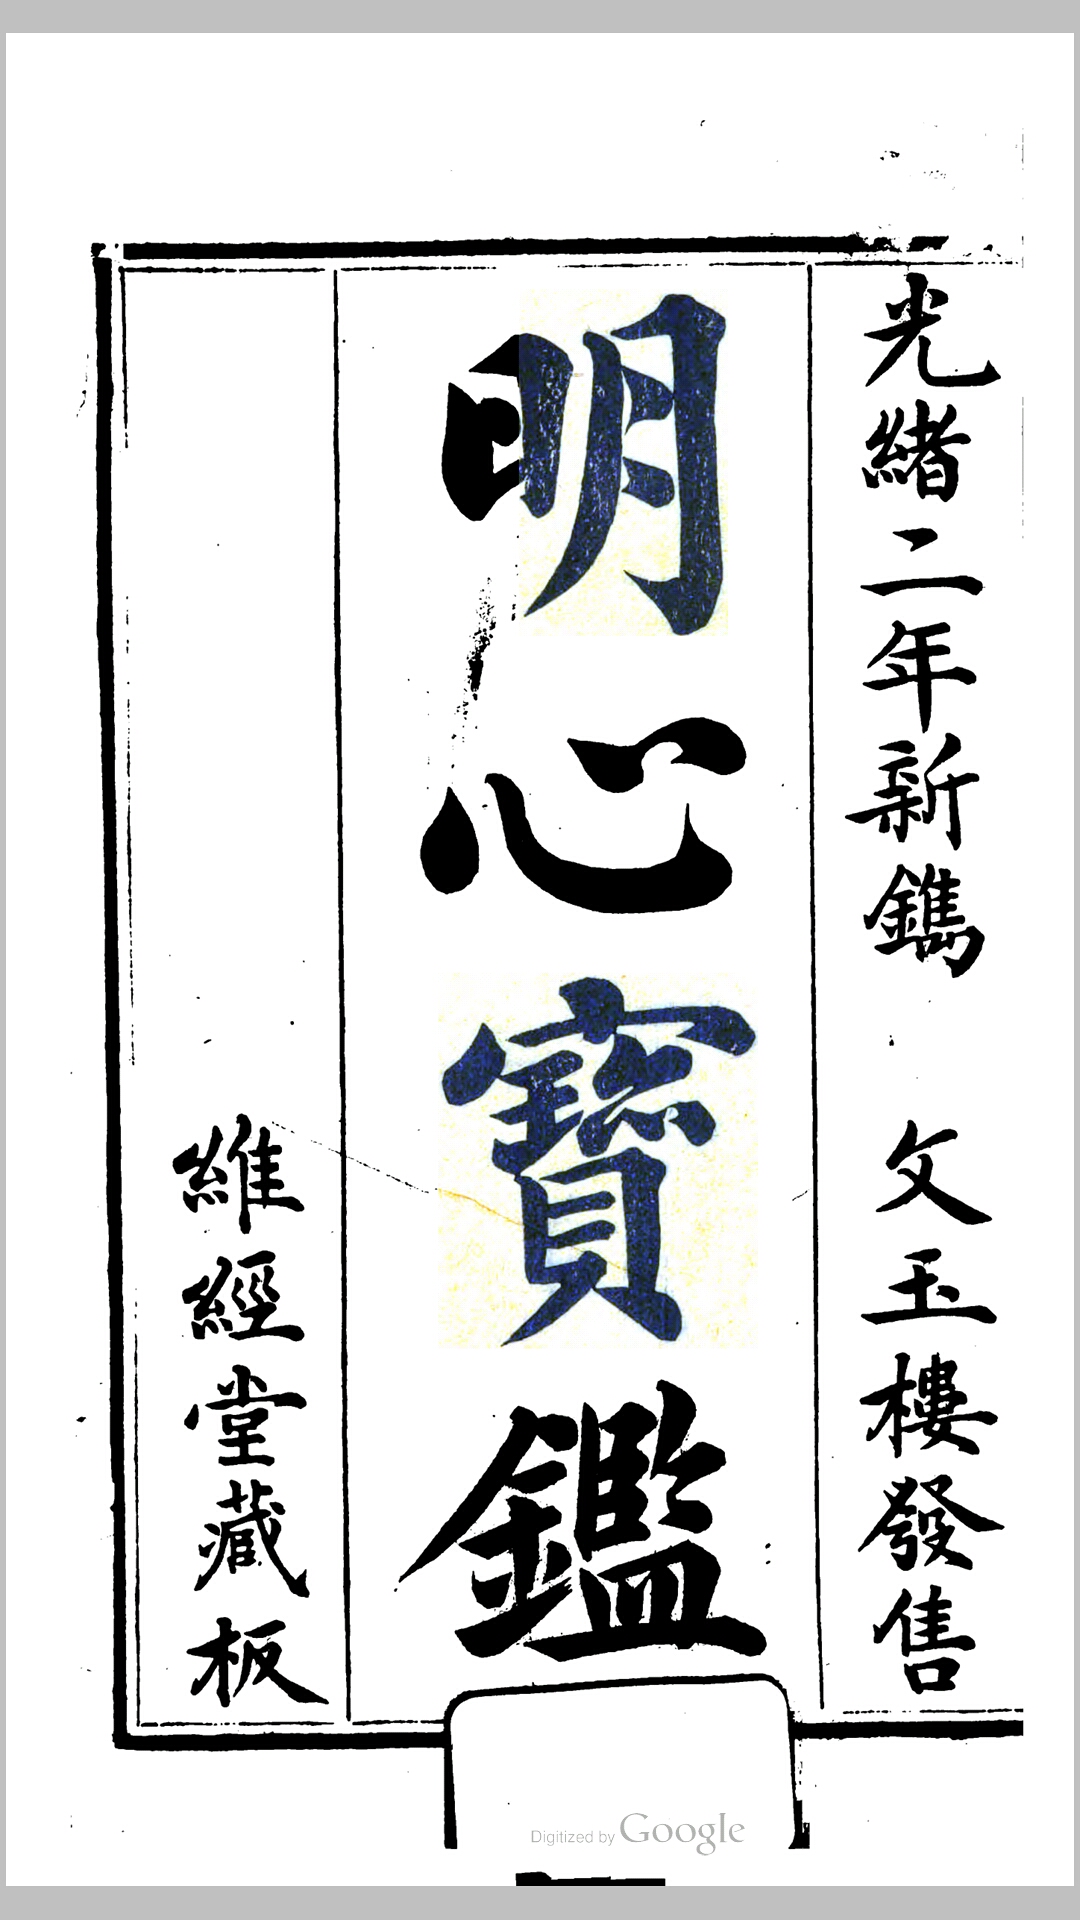 光緒二年新鐫 文玉樓發售
明心寶鑑
維經堂藏板
Digitized by Google